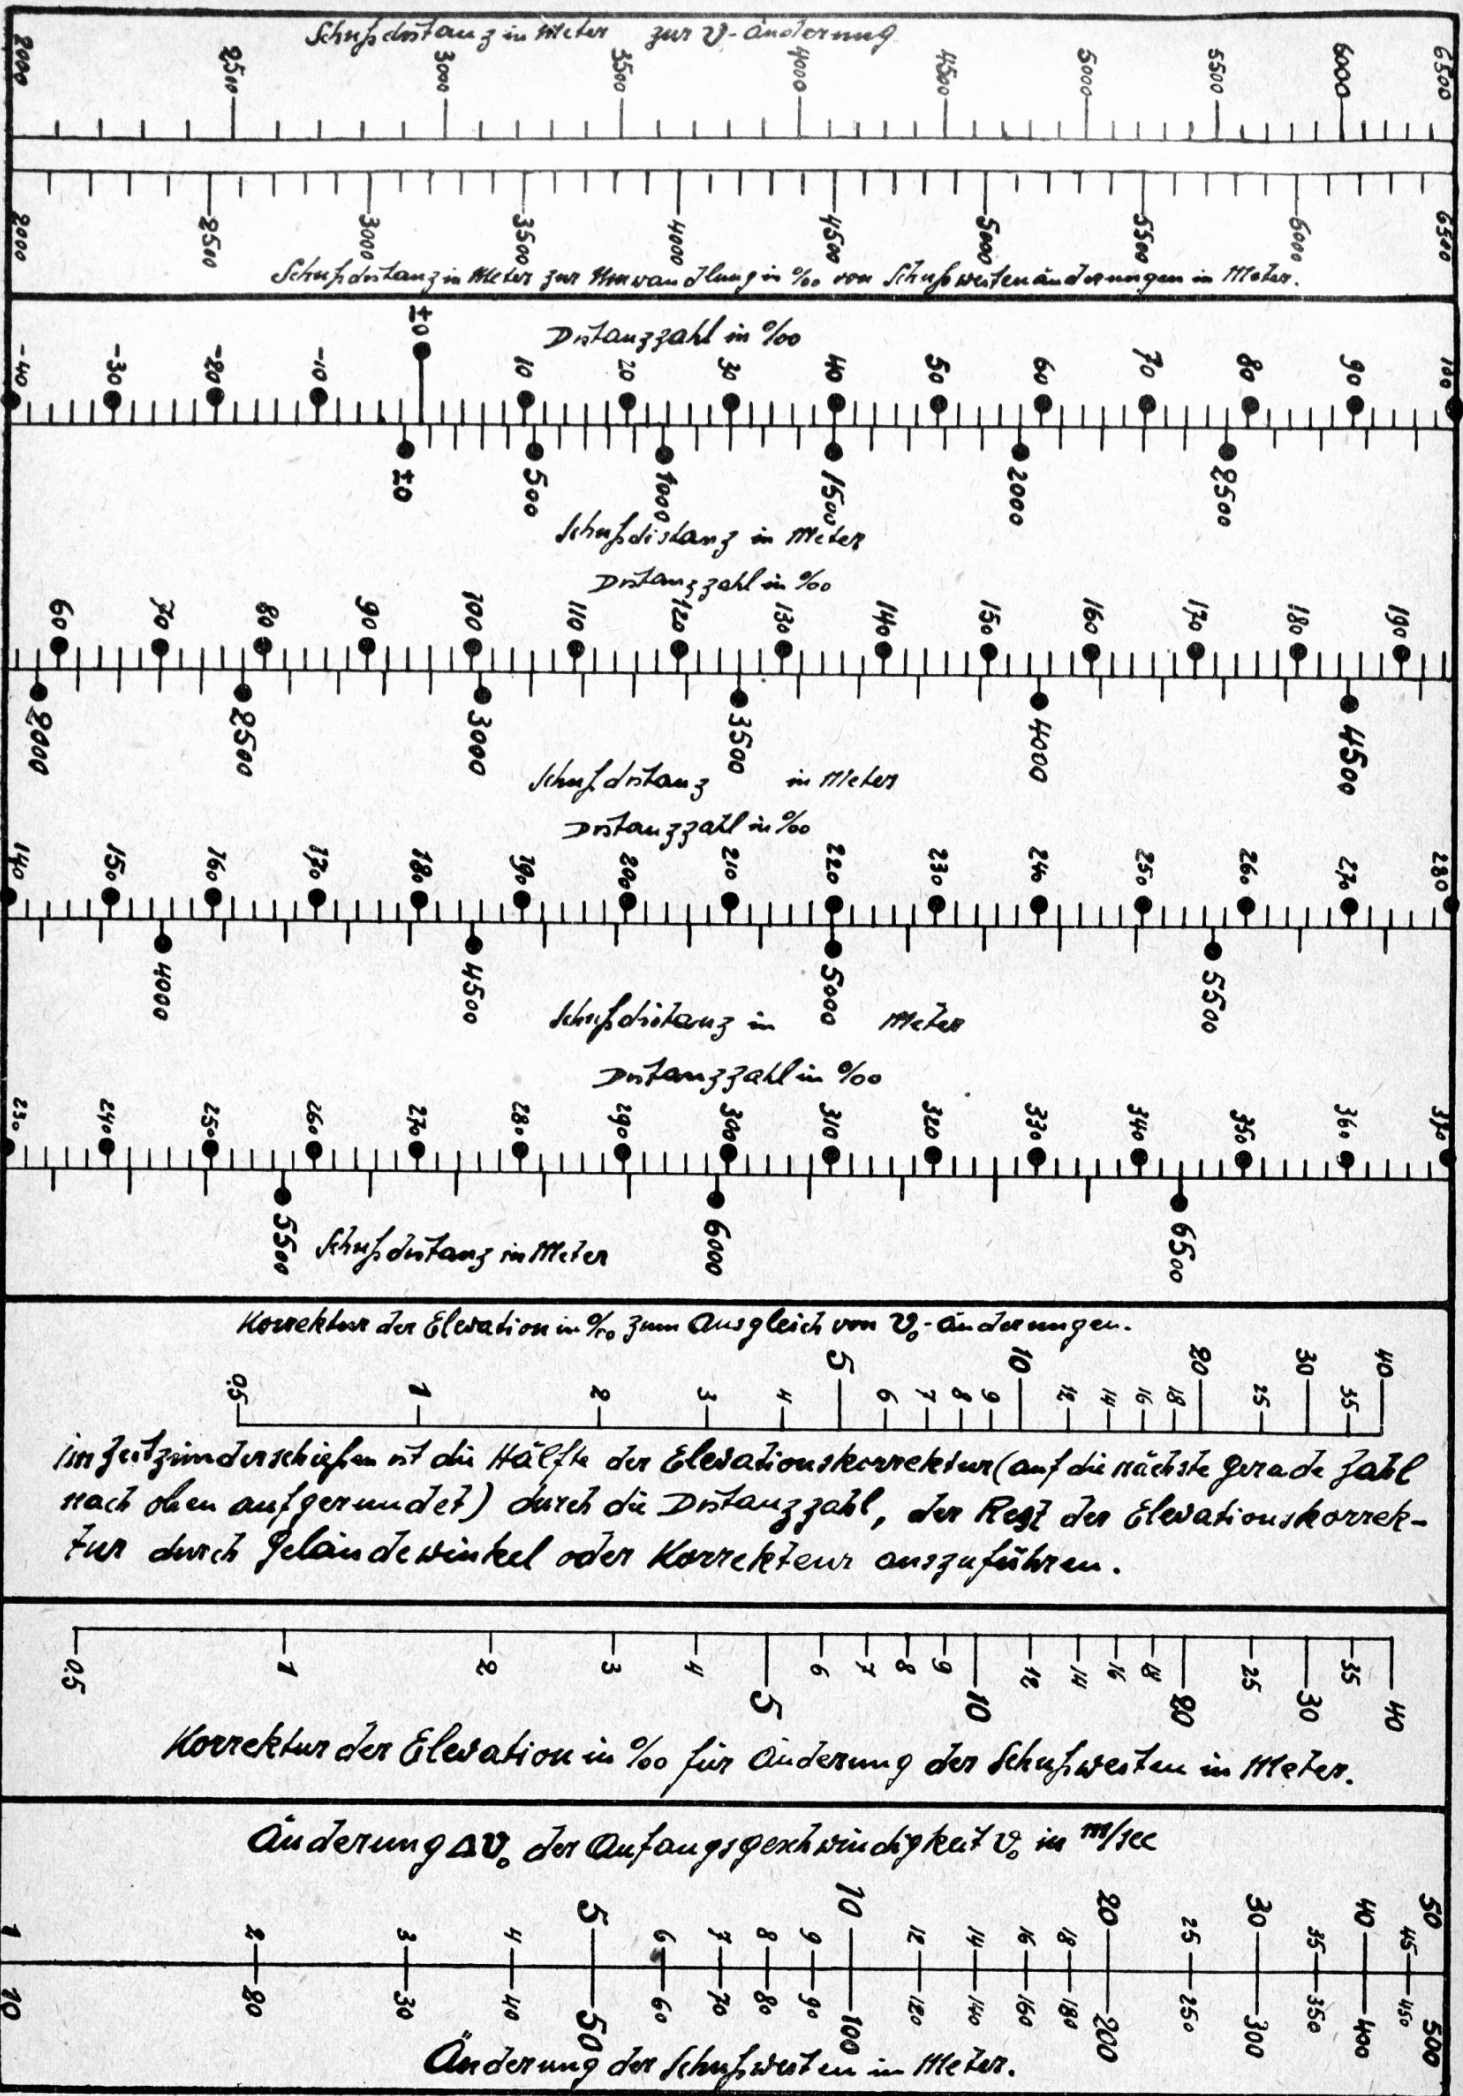 Schußdistanz in Meter zur V-änderung
2000 2500 3000 3500 4000 4500 5000 5500 6000 6500
2000 2500 3000 3500 4000 4500 5000 5500 6000 6500
Schußdistanz in Meter zur Umwandlung in ‰ von Schußweitenänderungen in Meter.
Distanzzahl in ‰
-40 -30 -20 -10 ±0 10 20 30 40 50 60 70 80 90 100
±0 500 1000 1500 2000 2500
Schußdistanz in Meter
Distanzzahl in ‰
60 70 80 90 100 110 120 130 140 150 160 170 180 190
2000 2500 3000 3500 4000 4500
Schußdistanz in Meter
Distanzzahl in ‰
140 150 160 170 180 190 200 210 220 230 240 250 260 270 280
4000 4500 5000 5500
Schußdistanz in Meter
Distanzzahl in ‰
230 240 250 260 270 280 290 300 310 320 330 340 350 360 370
5500 6000 6500
Schußdistanz in Meter
Korrektur der Elevation in ‰ zum Ausgleich von V₀-änderungen.
0.5 1 2 3 4 5 6 7 8 9 10 12 14 16 18 20 25 30 35 40
im Zeitzünderschießen ist die Hälfte der Elevationskorrektur (auf die nächste gerade Zahl
nach oben aufgerundet) durch die Distanzzahl, der Rest der Elevationskorrek-
tur durch Geländewinkel oder Korrekteur auszuführen.
0.5 1 2 3 4 5 6 7 8 9 10 12 14 16 18 20 25 30 35 40
Korrektur der Elevation in ‰ für Änderung der Schußweiten in Meter.
Änderung ΔV₀ der Anfangsgeschwindigkeit V₀ in m/sec
1 2 3 4 5 6 7 8 9 10 12 14 16 18 20 25 30 35 40 45 50
10 20 30 40 50 60 70 80 90 100 120 140 160 180 200 250 300 350 400 450 500
Änderung der Schußweiten in Meter.